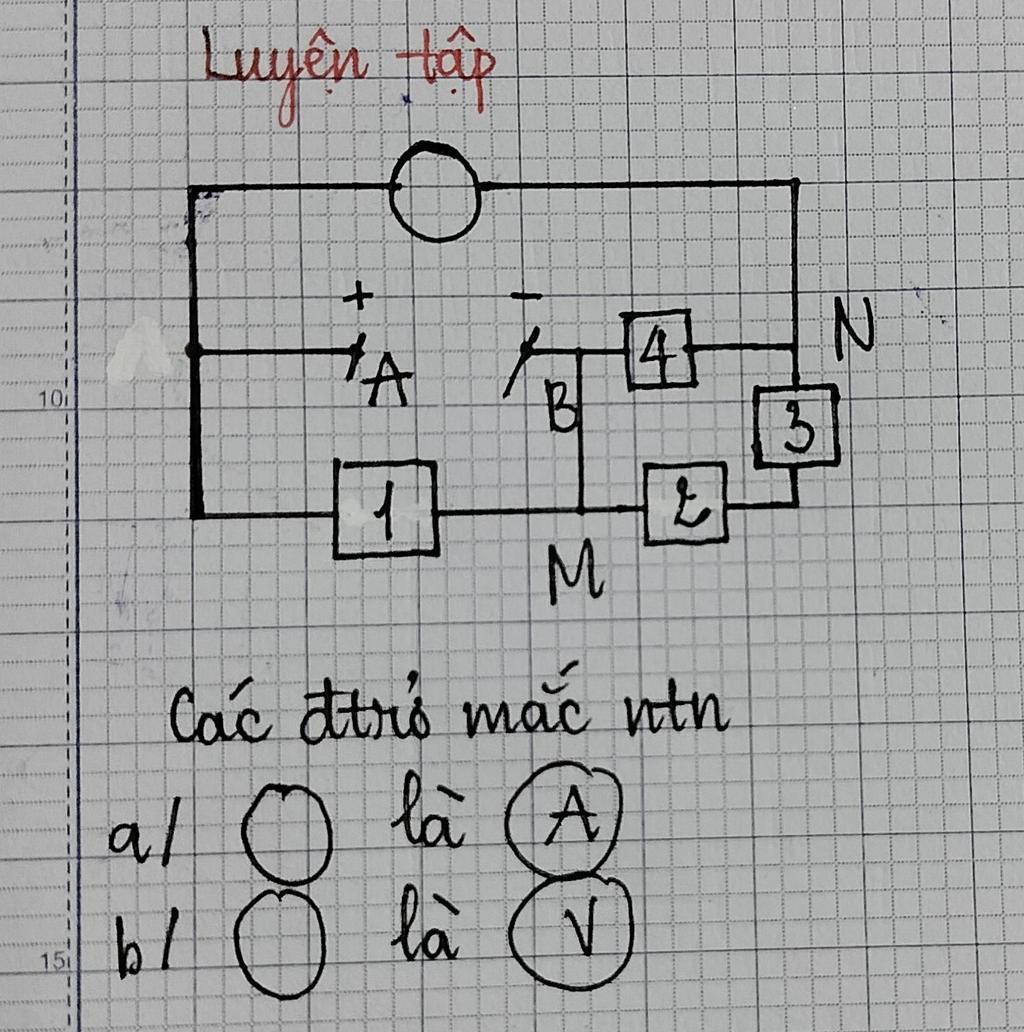 Luyện tập
+ −
A B 4 N
3
1 2
M
Các đtrở mắc ntn
a/ là A
b/ là V
10
15